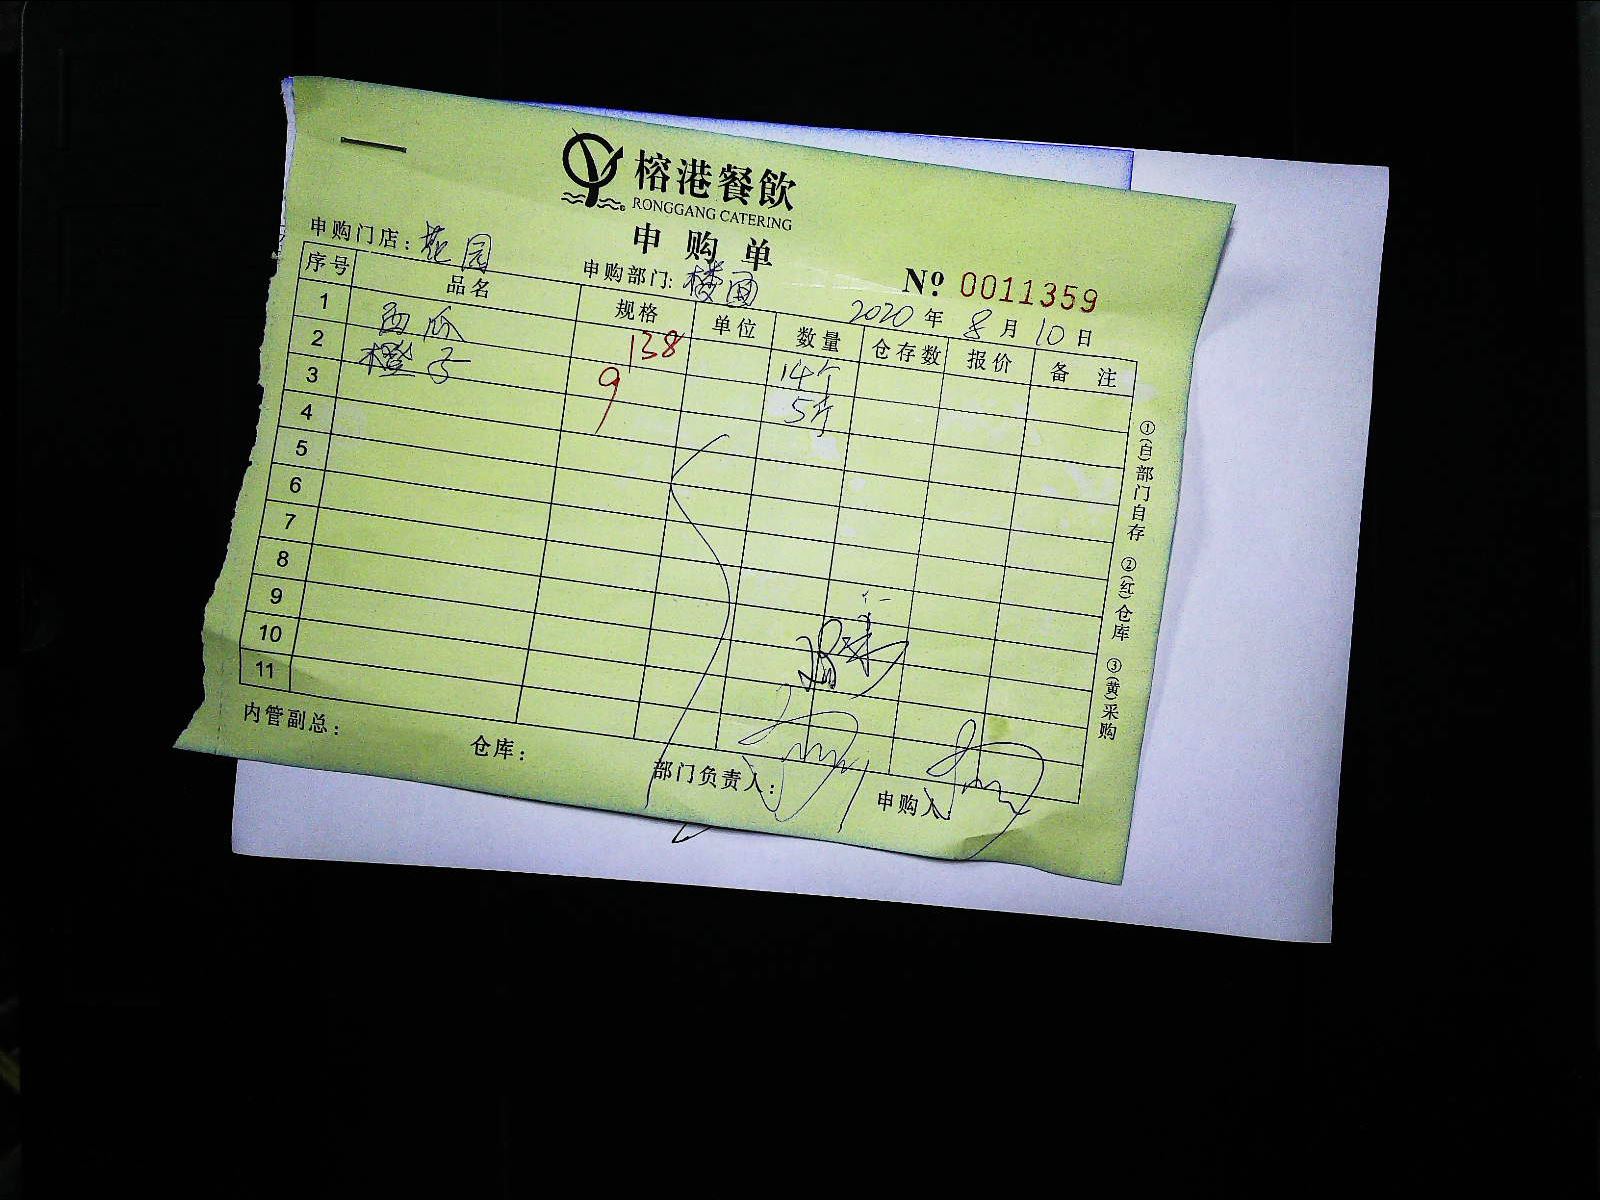 榕港餐飲
RONGGANG CATERING
申购单
申购门店：花园 申购部门：楼面 № 0011359
2020年8月10日
序号 品名 规格 单位 数量 仓存数 报价 备注
1 西瓜 138 14个
2 橙子 9 5斤
3
4
5
6
7
8
9
10
11
内管副总： 仓库： 部门负责人： 申购人
①(白)部门自存 ②(红)仓库 ③(黄)采购